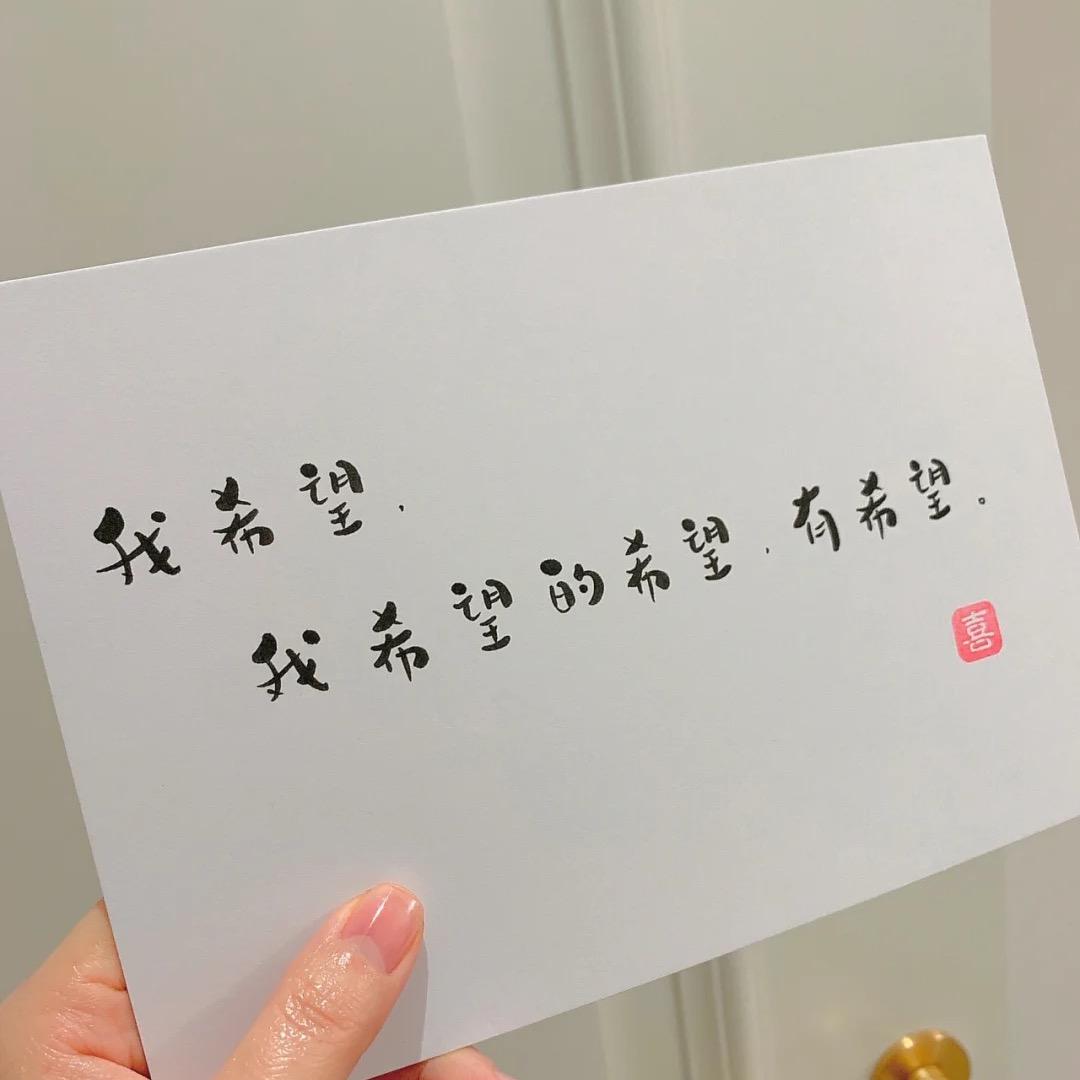 我希望,
我希望的希望,有希望。
喜